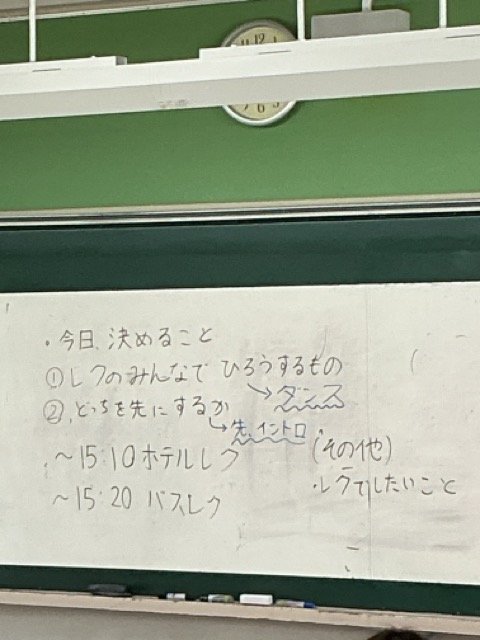 12
6
・今日、決めること
①レクのみんなで ひろうするもの
→ダンス
②、どっちを先にするか
→先、イントロ
～15:10 ホテルレク
～15:20 バスレク
(その他)
・レクでしたいこと